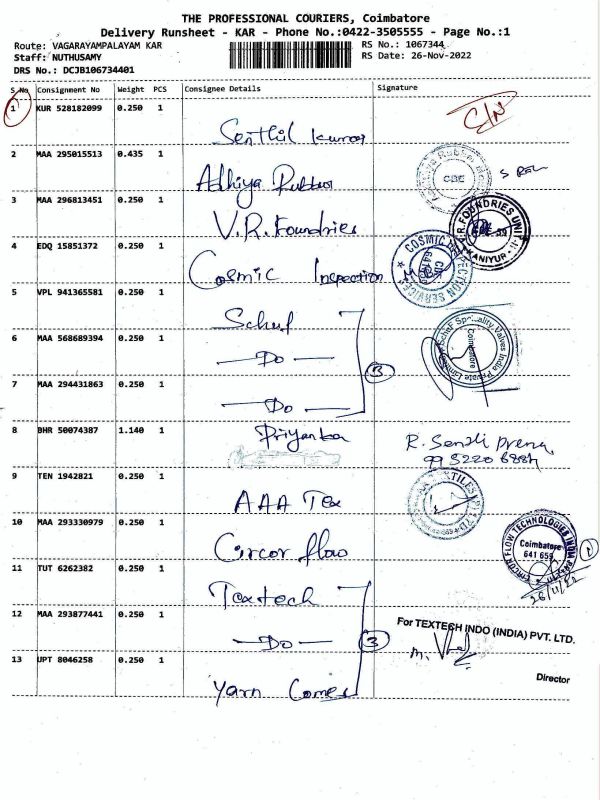 THE PROFESSIONAL COURIERS, Coimbatore
Delivery Runsheet - KAR - Phone No.:0422-3505555 - Page No.:1
Route: VAGARAYAMPALAYAM KAR
RS No.: 1067344
Staff: NUTHUSAMY
RS Date: 26-Nov-2022
DRS No.: DCJB106734401
S.No Consignment No Weight PCS Consignee Details Signature
1 KUR 528182099 0.250 1
Senthil Kumar
C/N
2 MAA 295015513 0.435 1
Adhiya Rubber
CBE
3 MAA 296813451 0.250 1
V.R. Foundries
V.R. FOUNDRIES UNIT-II
KANIYUR
4 EDQ 15851372 0.250 1
Cosmic Inspection
COSMIC INSPECTION SERVICES
CBE
5 VPL 941365581 0.250 1
Schuf
SchuF Speciality Valves India Private Limited
Coimbatore
6 MAA 568689394 0.250 1
Do
3
7 MAA 294431863 0.250 1
Do
8 BHR 50074387 1.140 1
Priyanka
9 TEN 1942821 0.250 1
AAA Tex
10 MAA 293330979 0.250 1
Circor flow
CIRCOR FLOW TECHNOLOGIES INDIA
Coimbatore
641 659
26/11/22
11 TUT 6262382 0.250 1
Textech
12 MAA 293877441 0.250 1
Do
3
For TEXTECH INDO (INDIA) PVT. LTD.
Director
13 UPT 8046258 0.250 1
Yarn Comes